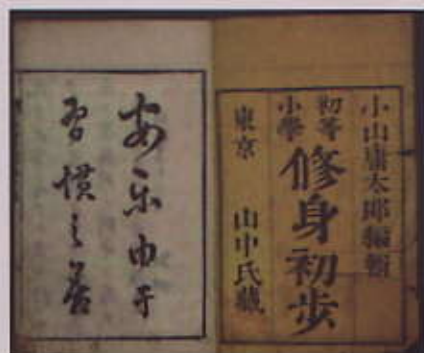 小山庸太郎編輯
初等
小學
修身初歩
東京 山中氏藏
安樂由于
習慣之善